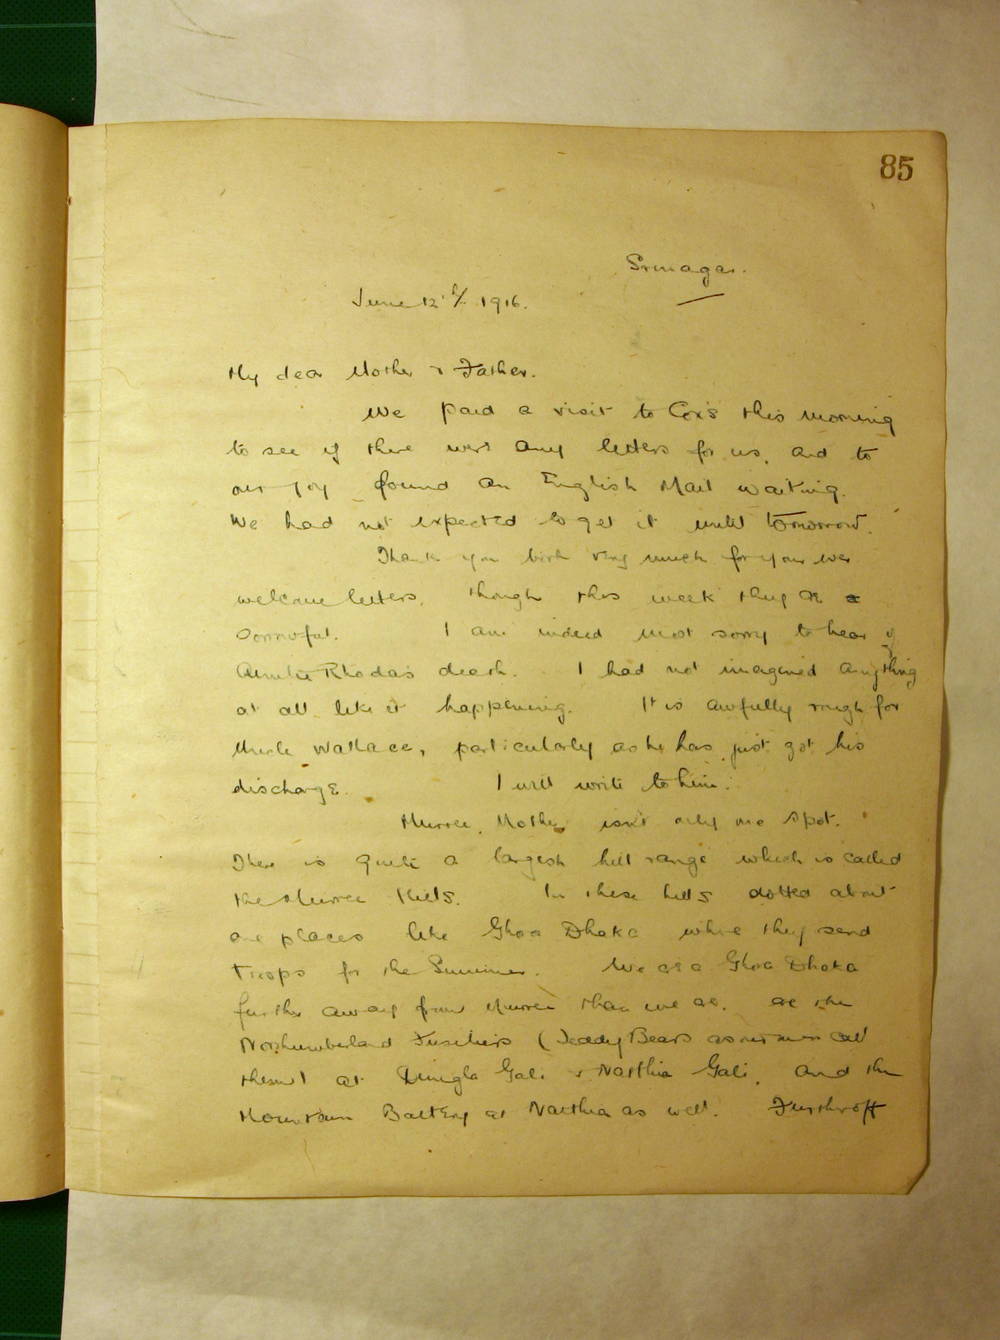 85
Srinagar.
June 12th/ 1916.
My dear Mother & Father.
We paid a visit to Cox's this morning
to see if there were any letters for us, and to
our joy found an English Mail waiting.
We had not expected to get it until tomorrow.
Thank you both very much for your ever
welcome letters, though this week they are
sorrowful. I am indeed most sorry to hear of
Auntie Rhoda's death. I had not imagined anything
at all like it happening. It is awfully rough for
Uncle Wallace, particularly as he has just got his
discharge. I will write to him.
Murree, Mother, isn't only one spot.
There is quite a largish hill range which is called
the Murree Hills. In these hills dotted about
are places like Ghora Dhaka where they send
troops for the Summer. We are a Ghora Dhaka
further away from Murree than we are, are the
Northumberland Fusiliers (Teddy Bears as our men call
them) at Dungla Gali & Nathia Gali, and the
Mountain Battery at Nathia as well. Further off